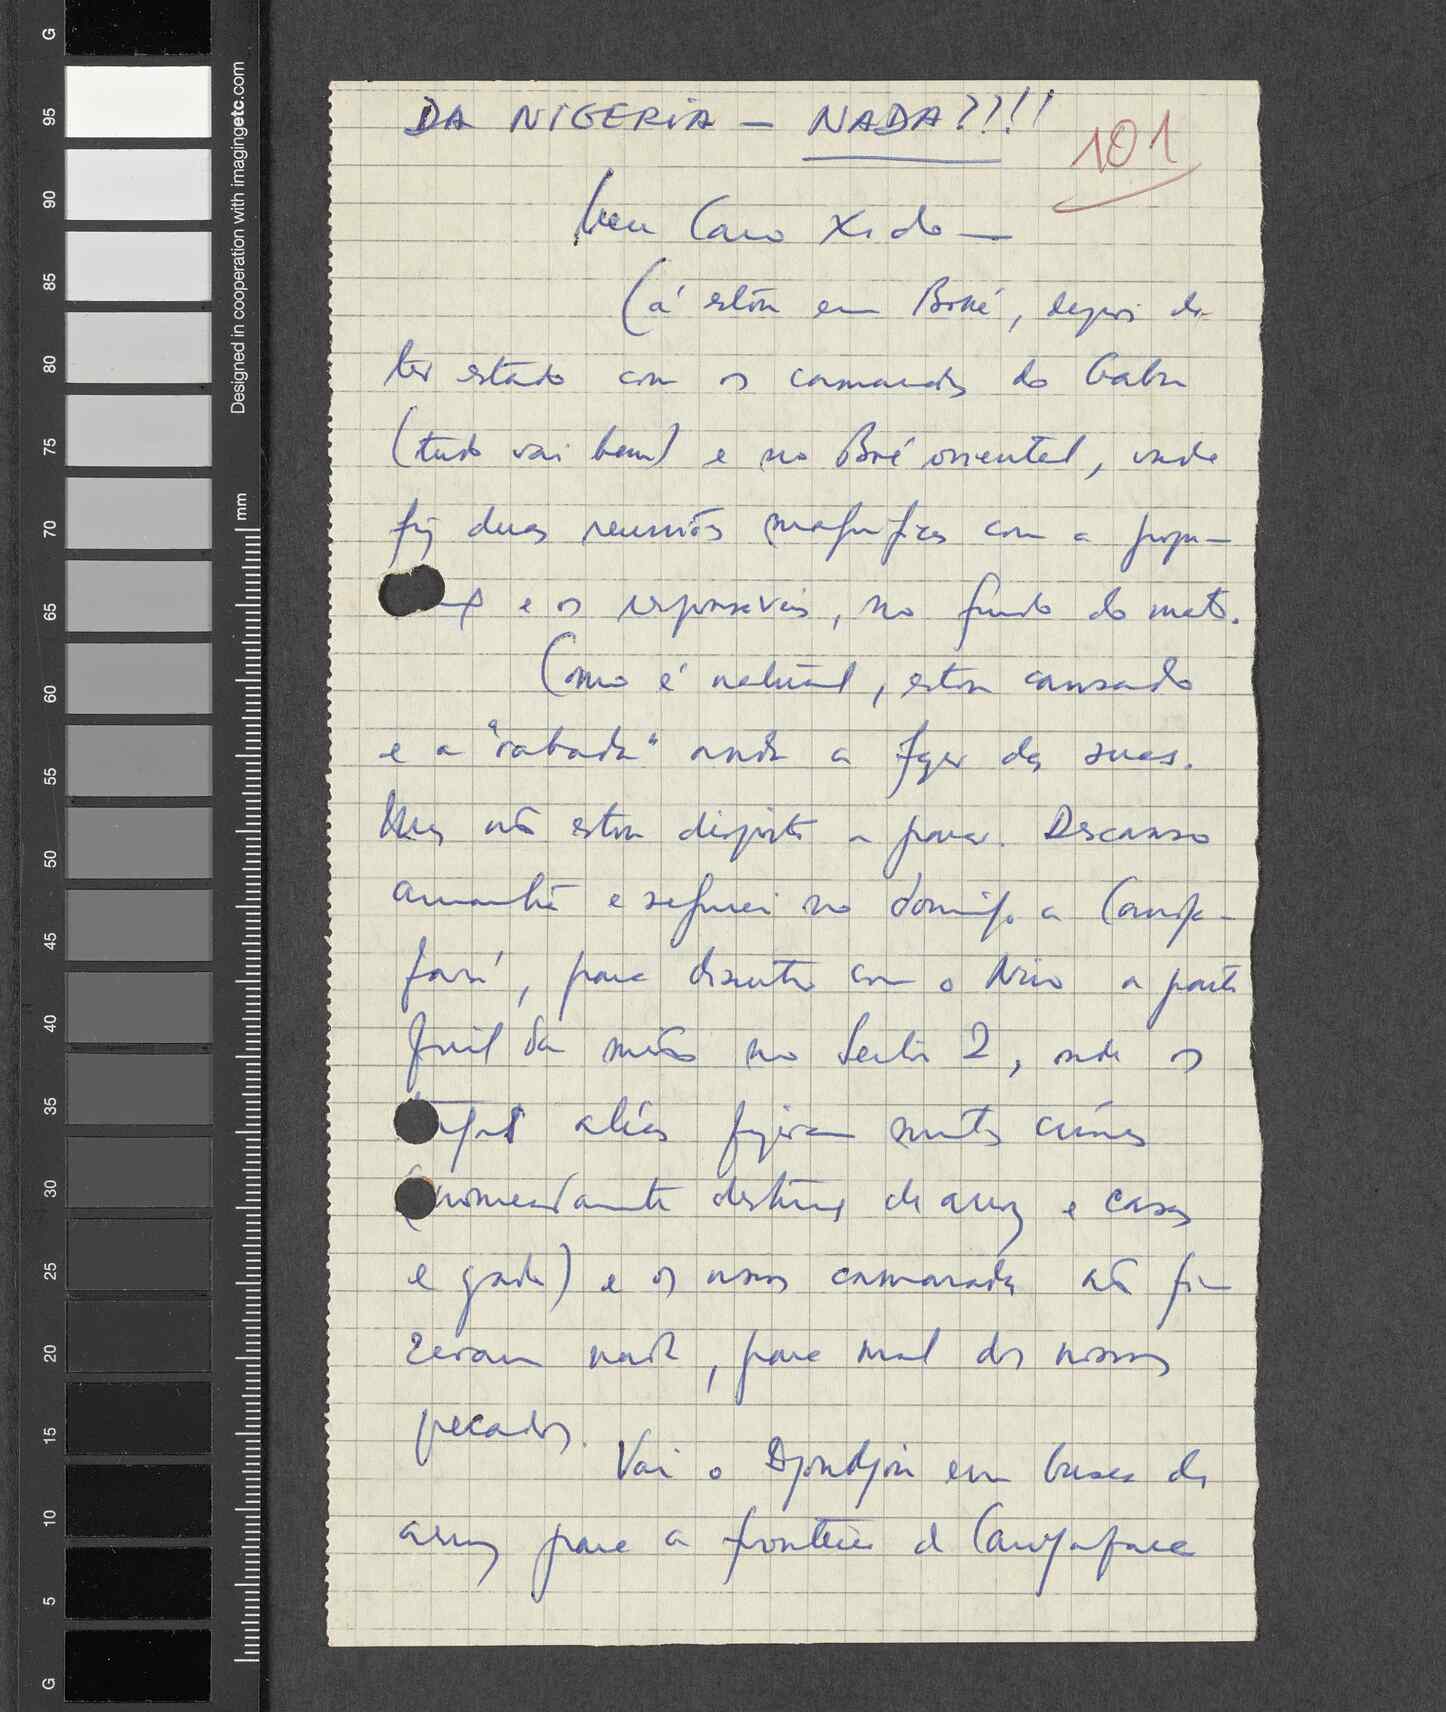 DA NIGERIA — NADA??!!
101
Meu Caro Xido —
Cá estou em Boké, depois de
ter estado com os camaradas do Gabu
(tudo vai bem) e no Boé oriental, onde
fiz duas reuniões magníficas com a popu-
e os responsáveis, no fundo do mato.
Como é natural, estou cansado
e a "rabada" anda a fazer das suas.
Mas não estou disposto a parar. Descanso
amanhã e seguirei no domingo a Candja-
fará, para discutir com o Nino a parte
final da missão no Sector 2, onde os
tugas aliás fizeram muitos crimes
(nomeadamente destruiç de arroz e casas
e gado) e os nossos camaradas não fi-
zeram nada, para mal dos nossos
pecados.
Vai o Djondjon em busca de
arroz para a fronteira de Candjafara
Designed in cooperation with imagingetc.com
mm
G
95
90
85
80
75
70
65
60
55
50
45
40
35
30
25
20
15
10
5
G